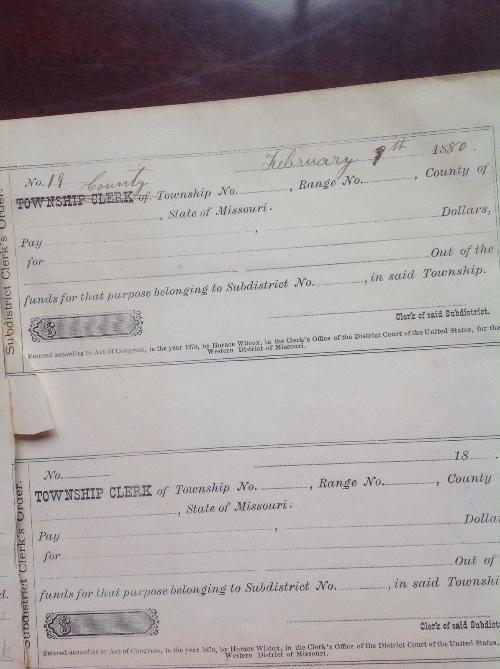 February 9th 1880.
No. 19 County
TOWNSHIP CLERK of Township No. , Range No. , County of
, State of Missouri.
Pay , Dollars,
for Out of the
funds for that purpose belonging to Subdistrict No. , in said Township.
Clerk of said Subdistrict.
$
Entered according to Act of Congress, in the year 1870, by Horace Wilcox, in the Clerk's Office of the District Court of the United States, for the
Western District of Missouri.
Subdistrict Clerk's Order.
18
No.
TOWNSHIP CLERK of Township No. , Range No. , County
, State of Missouri:
Pay , Dolla
for Out of
funds for that purpose belonging to Subdistrict No. , in said Townshi
Clerk of said Subdist
$
Entered according to Act of Congress, in the year 1870, by Horace Wilcox, in the Clerk's Office of the District Court of the United States,
Western District of Missouri.
Subdistrict Clerk's Order.
d.